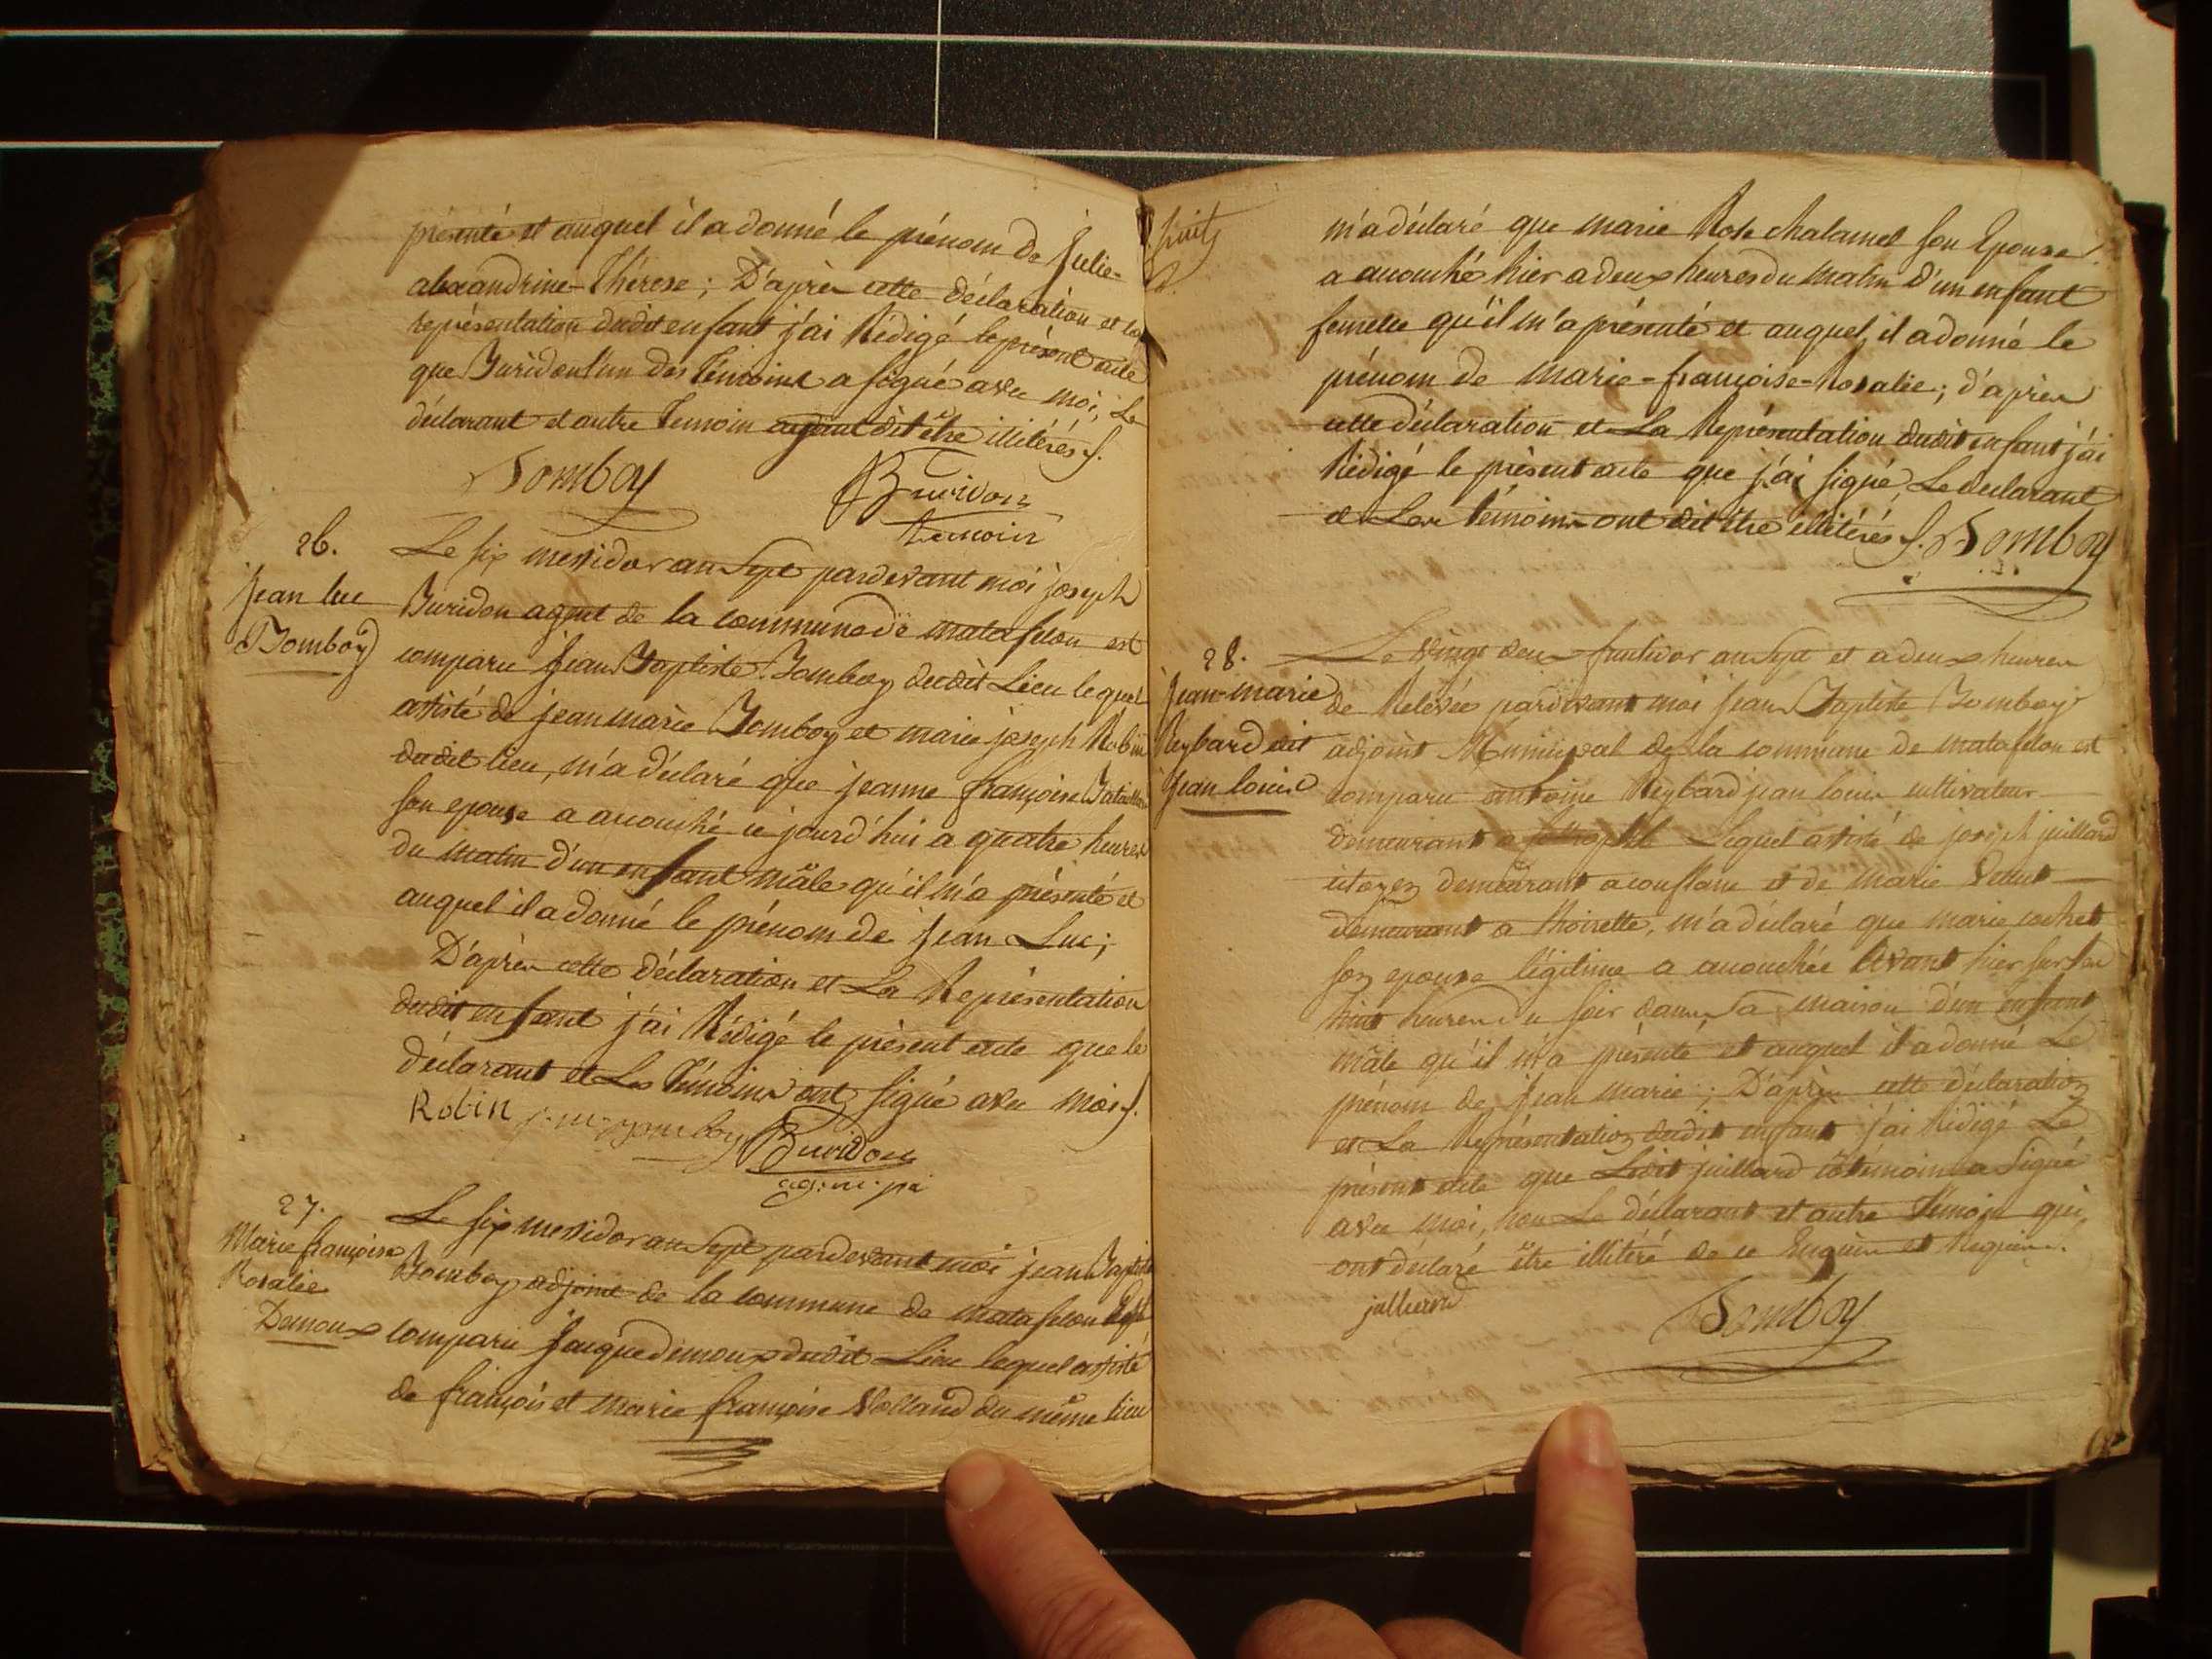 présenté et auquel il a donné le prénom de Julie-
alexandrine-Thérese ; D'après cette déclaration et la
représentation dudit enfant j'ai Rédigé le présent acte
que Buridon l'un des témoins a signé avec moi, Le
déclarant et autre Temoin ayant dit être illitérés ./.
Bomboy
Buridon
temoin
26.
jean luc
Bomboy
Le six messidor an Sept pardevant moi joseph
Buridon agent de la commune de matafelon est
comparu jean Baptiste Bomboy dudit Lieu lequel
assisté de jean marie Bomboy et marie joseph Robin
dudit lieu, m'a déclaré que jeanne françoise
son epouse a accouché ce jourd'hui a quatre heures
du matin d'un enfant mâle qu'il m'a présenté et
auquel il a donné le prénom de jean Luc ;
D'après cette déclaration et La Représentation
dudit enfant j'ai Rédigé le présent acte que le
déclarant et Les Témoins ont signé avec moi ./.
Robin j. m. bomboy Buridon
ag. m. pal
27.
Marie françoise
Rosalie
Demoux
Le six messidor an Sept pardevant moi jean Baptiste
Bomboy adjoint de la commune de matafelon Est
comparu jacque demoux dudit Lieu lequel assisté
de françois et marie françoise Volland du même lieu
suite
m'a déclaré que marie Rose chalamel son Epouse
a accouché hier a deux heures du matin d'un enfant
femelle qu'il m'a présenté et auquel il a donné le
prénom de marie-françoise-Rosalie ; d'après
cette déclaration et La Représentation dudit enfant j'ai
Rédigé le présent acte que j'ai signé, Le declarant
et Les témoins ont dit être illitérés ./. Bomboy
28.
jean-marie
Reybard dit
jean louis
Le vingt deux fructidor an Sept et a deux heures
de Relevée pardevant moi jean Baptiste Bomboy
adjoint Municipal de la commune de matafelon est
comparu antoine Reybard jean louis cultivateur
demeurant a Lequel assisté de joseph juillard
citoyen demeurant a conflans et de marie
demeurant a thoirette, m'a déclaré que marie cochet
son epouse légitime a accouchée avant hier sur les
huit heures du soir dans sa maison d'un enfant
mâle qu'il m'a présenté et auquel il a donné Le
prénom de jean marie ; D'après cette déclaration
et La Représentation dudit enfant j'ai Rédigé Le
présent acte que Ledit juillard témoin a Signé
avec moi, non Le déclarant et autre Témoin qui
ont déclaré être illitéré de ce Enquis et Requis ./.
julliard
Bomboy